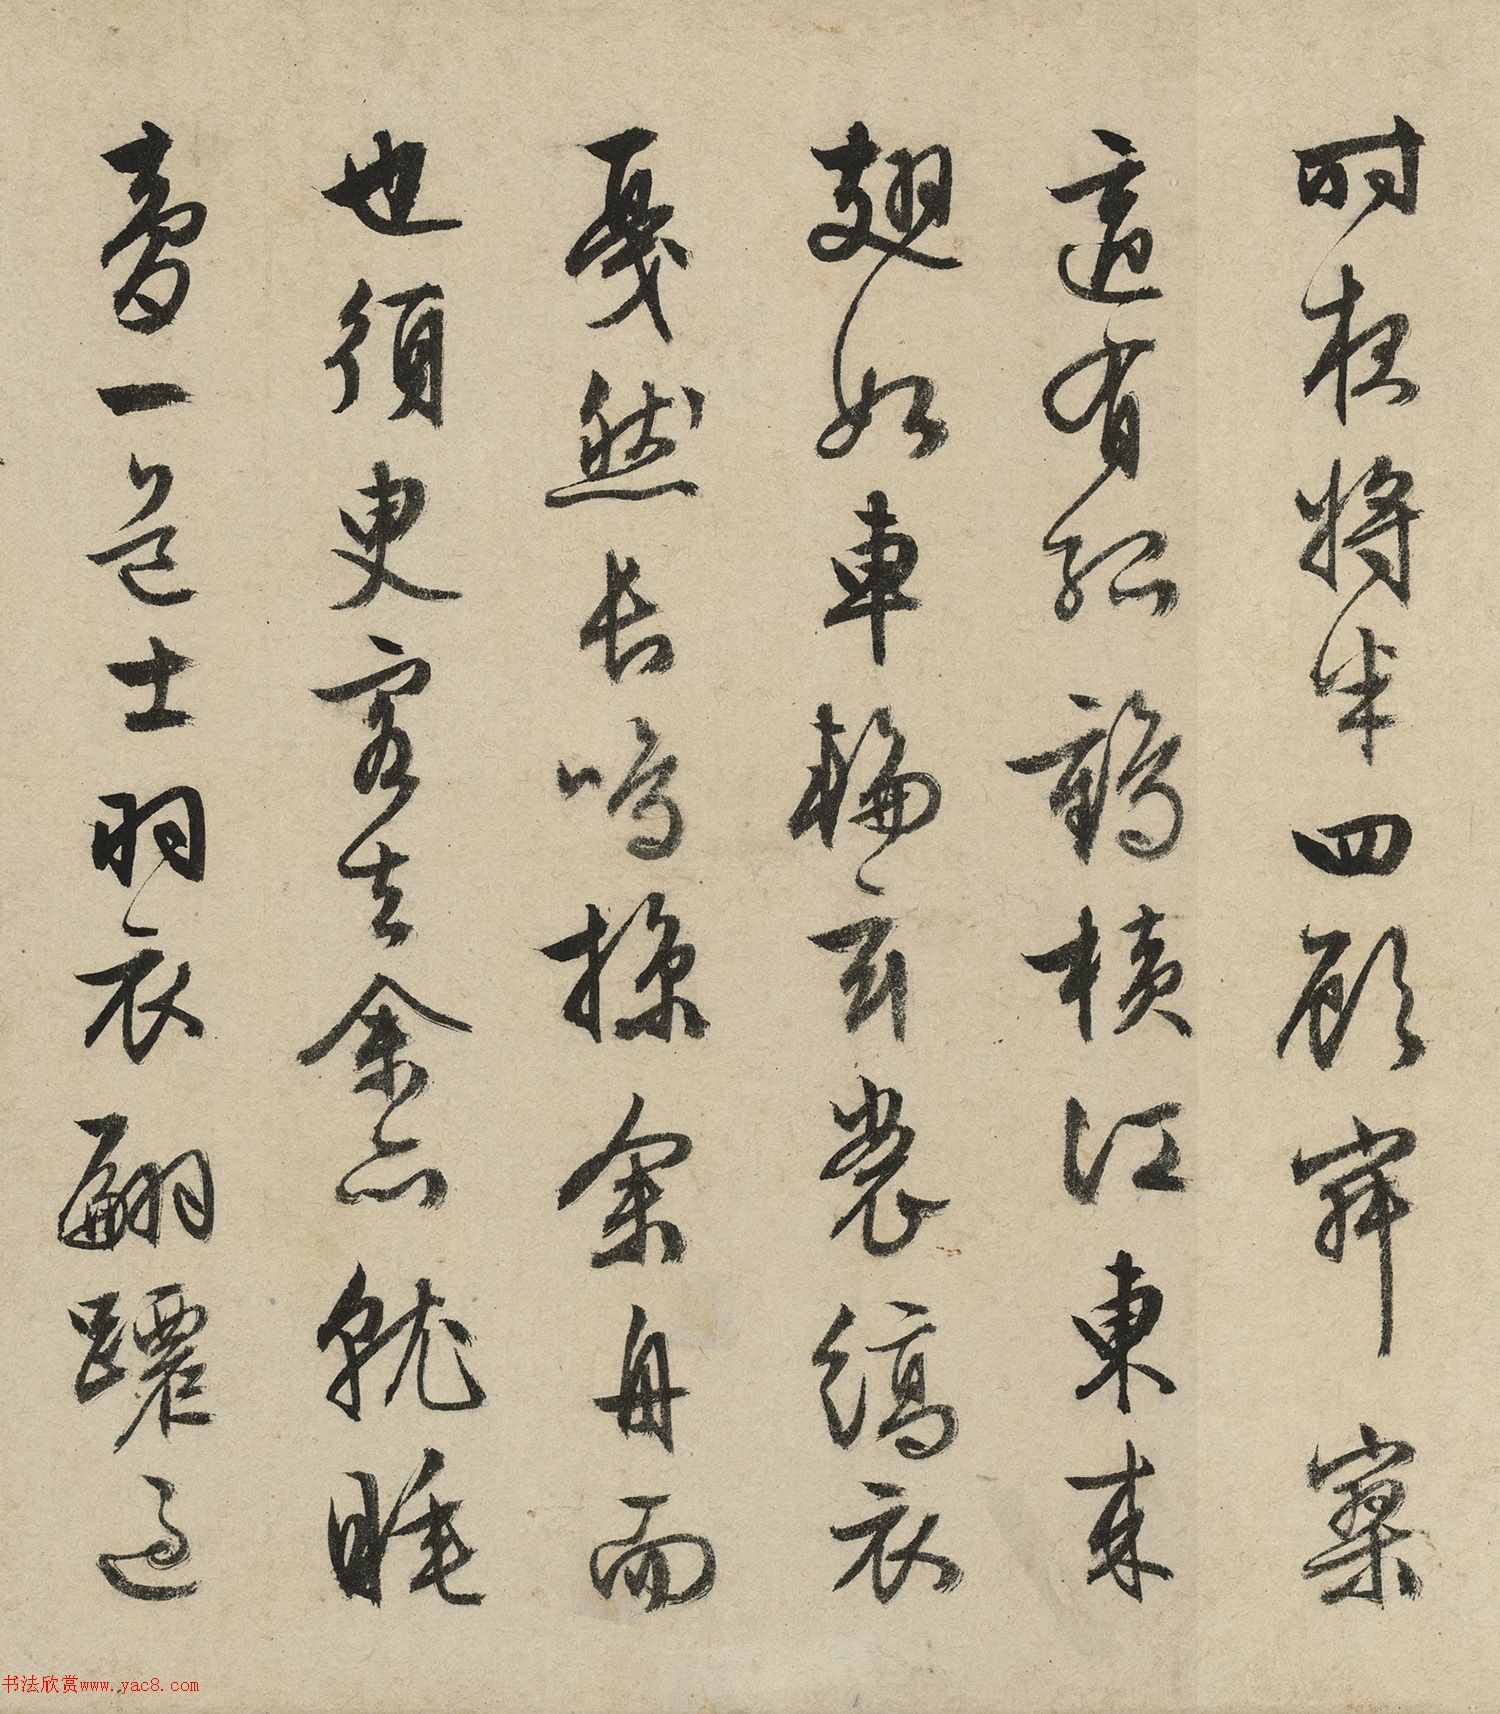 時夜將半四顧寂寥
適有孤鶴橫江東來
翅如車輪玄裳縞衣
戛然長鳴掠余舟而
也須臾客去余亦就睡
夢一道士羽衣翩躚過
书法欣赏www.yac8.com